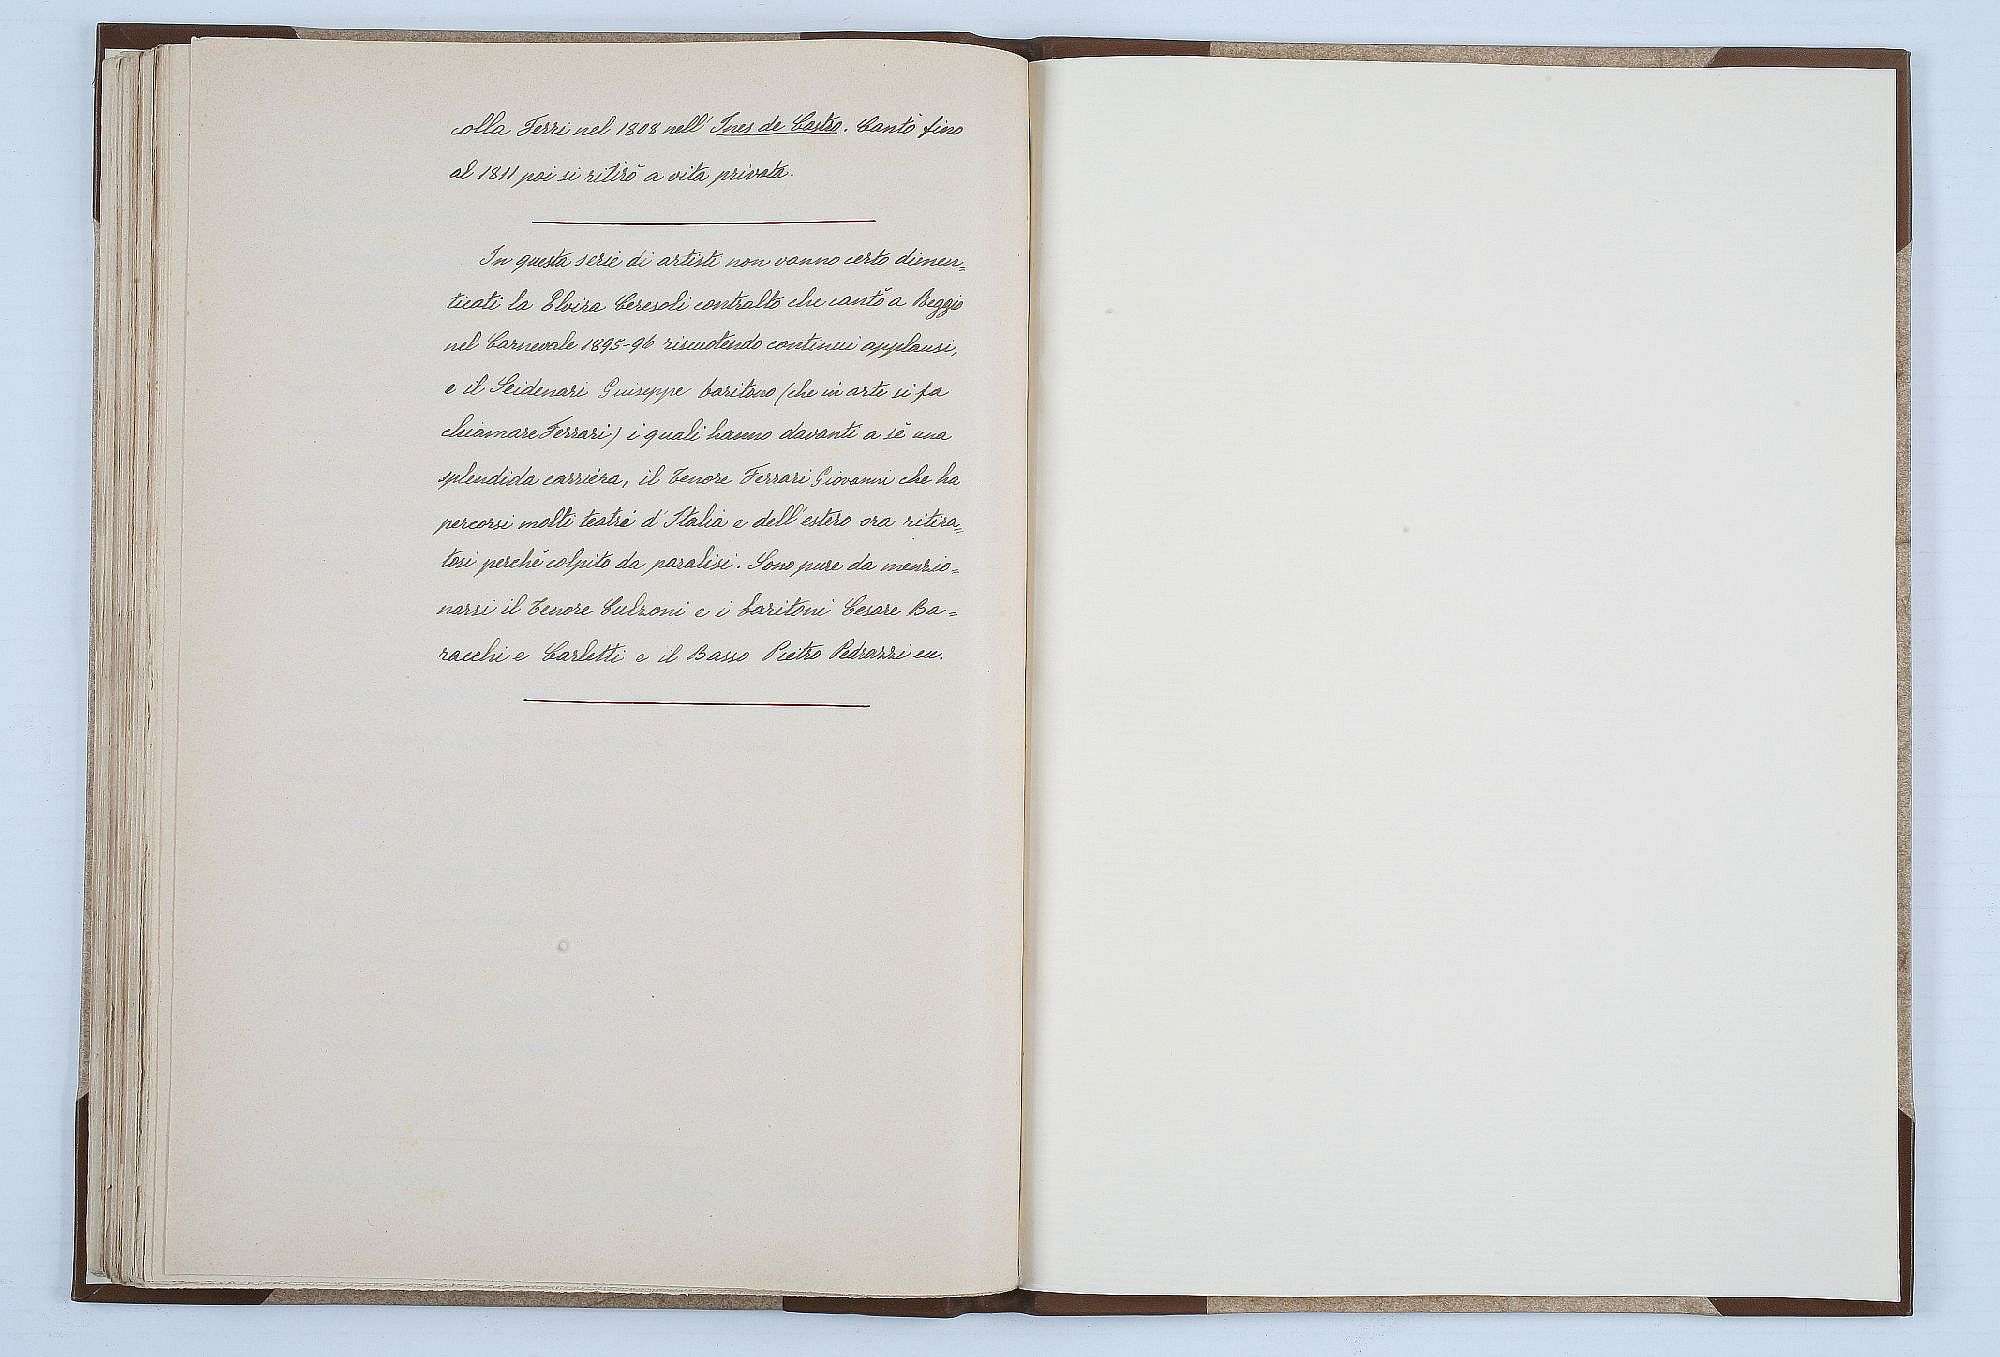 colla Ferri nel 1808 nell' Ines de Castro. Cantò fino
al 1811 poi si ritirò a vita privata.
In questa serie di artisti non vanno certo dimen=
ticati la Elvira Ceresoli contralto che cantò a Reggio
nel Carnevale 1895-96 riscuotendo continui applausi,
e il Seidenari Giuseppe baritono (che in arte si fa
chiamare Ferrari) i quali hanno davanti a sè una
splendida carriera, il Tenore Ferrari Giovanni che ha
percorsi molti teatri d'Italia e dell'estero ora ritira=
tosi perchè colpito da paralisi. Sono pure da menzio=
narsi il Tenore Culzoni e i baritoni Cesare Ba=
racchi e Carletti e il Basso Pietro Pedrazzi